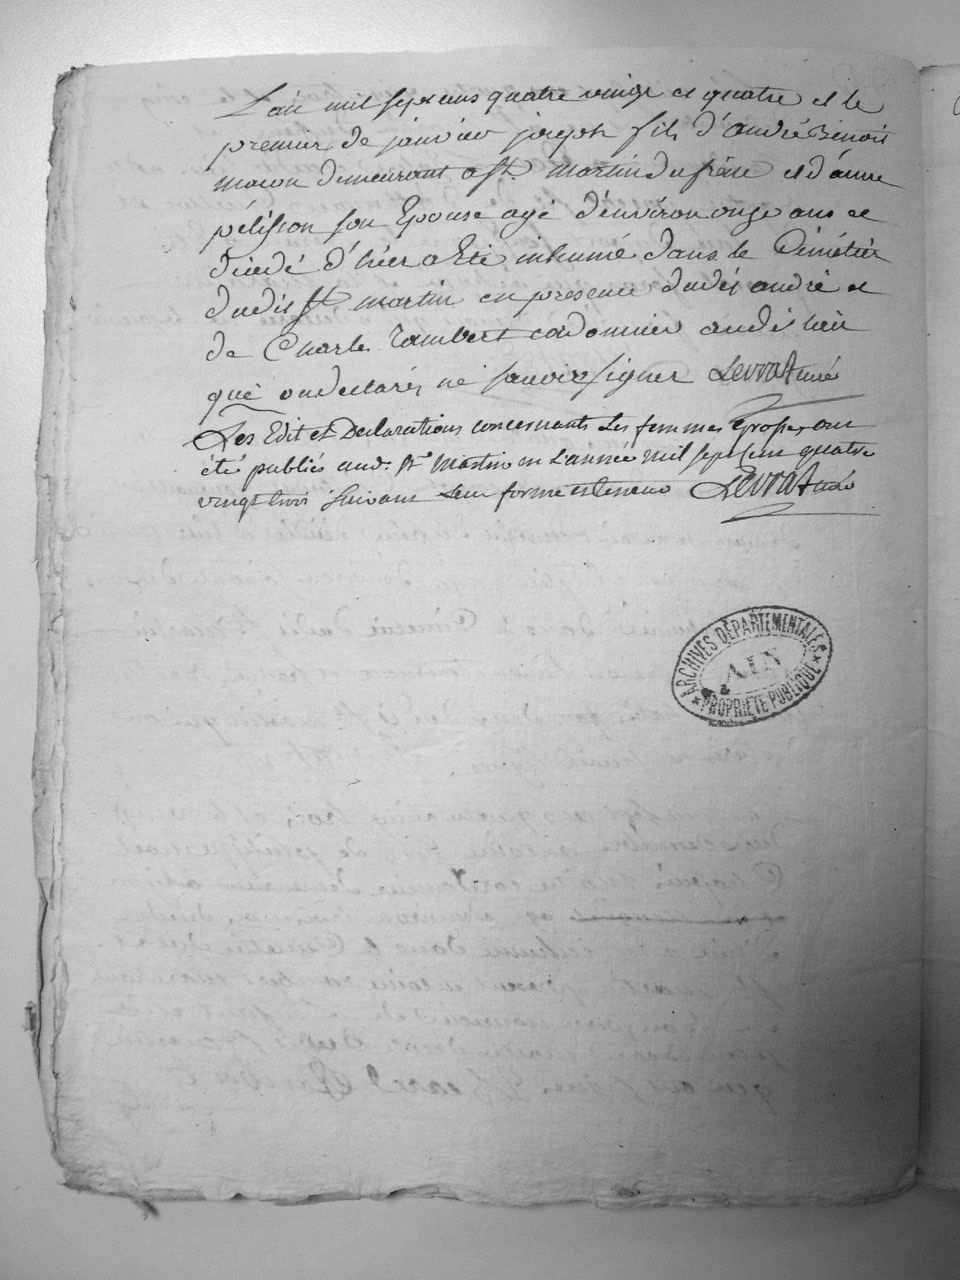 L'an mil sept cens quatre vingt et quatre et le
premier de janvier joseph fils d'andré Benoit
macon demeurant a St. martin du frêne et d'anne
pélisson son Epouse agé d'environ onze ans et
décédé d'hier a Eté inhumé dans le Cimétièr
dudit St martin en présence dudit andré et
de Charle rambert cordonnier audit lieu
qui ont declarés ne savoir signer Levrat curé
Les Edit et Declarations concernants Les femmes Grosses ont
été publiés aud. St Martin en L'année mil sept cent quatre
vingt trois suivant Leur forme et teneur Levrat curé
ARCHIVES DÉPARTEMENTALES
AIN
PROPRIÉTÉ PUBLIQUE